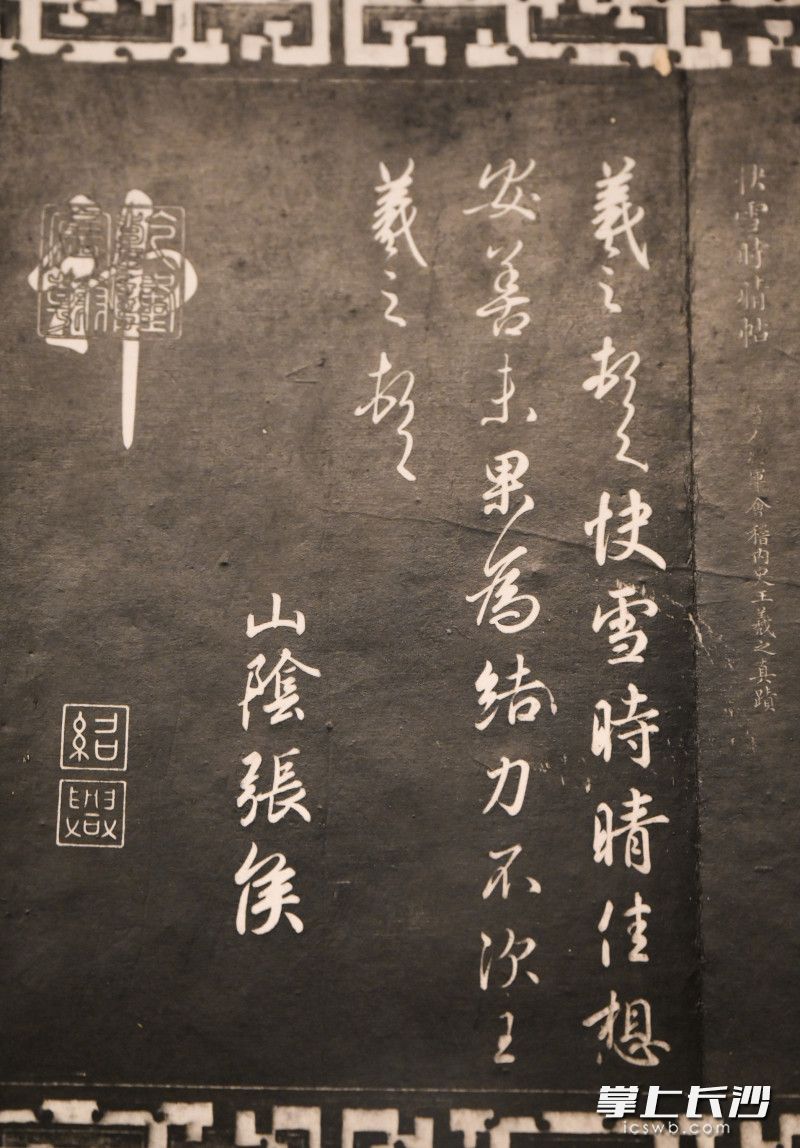 快雪時晴帖
軍會稽內史王羲之真蹟
羲之頓首快雪時晴佳想
安善未果為結力不次王
羲之頓首
山陰張侯
神
紹興
掌上长沙
icswb.com